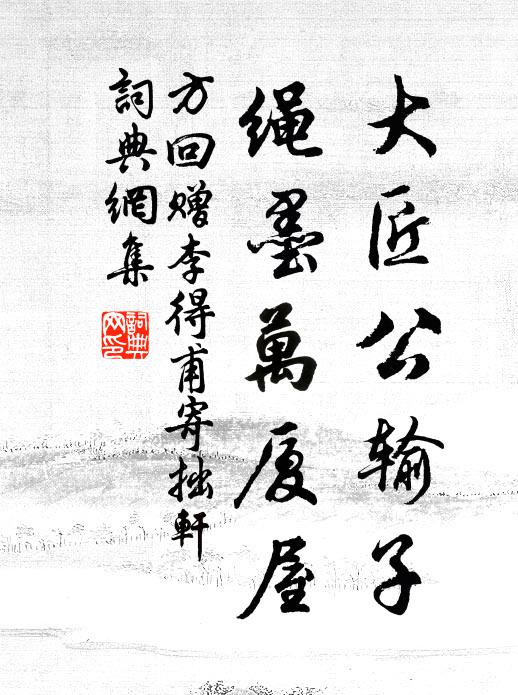 大匠公输子
绳墨萬厦屋
方回赠李得甫寄拙軒
詞典網集
詞典網印